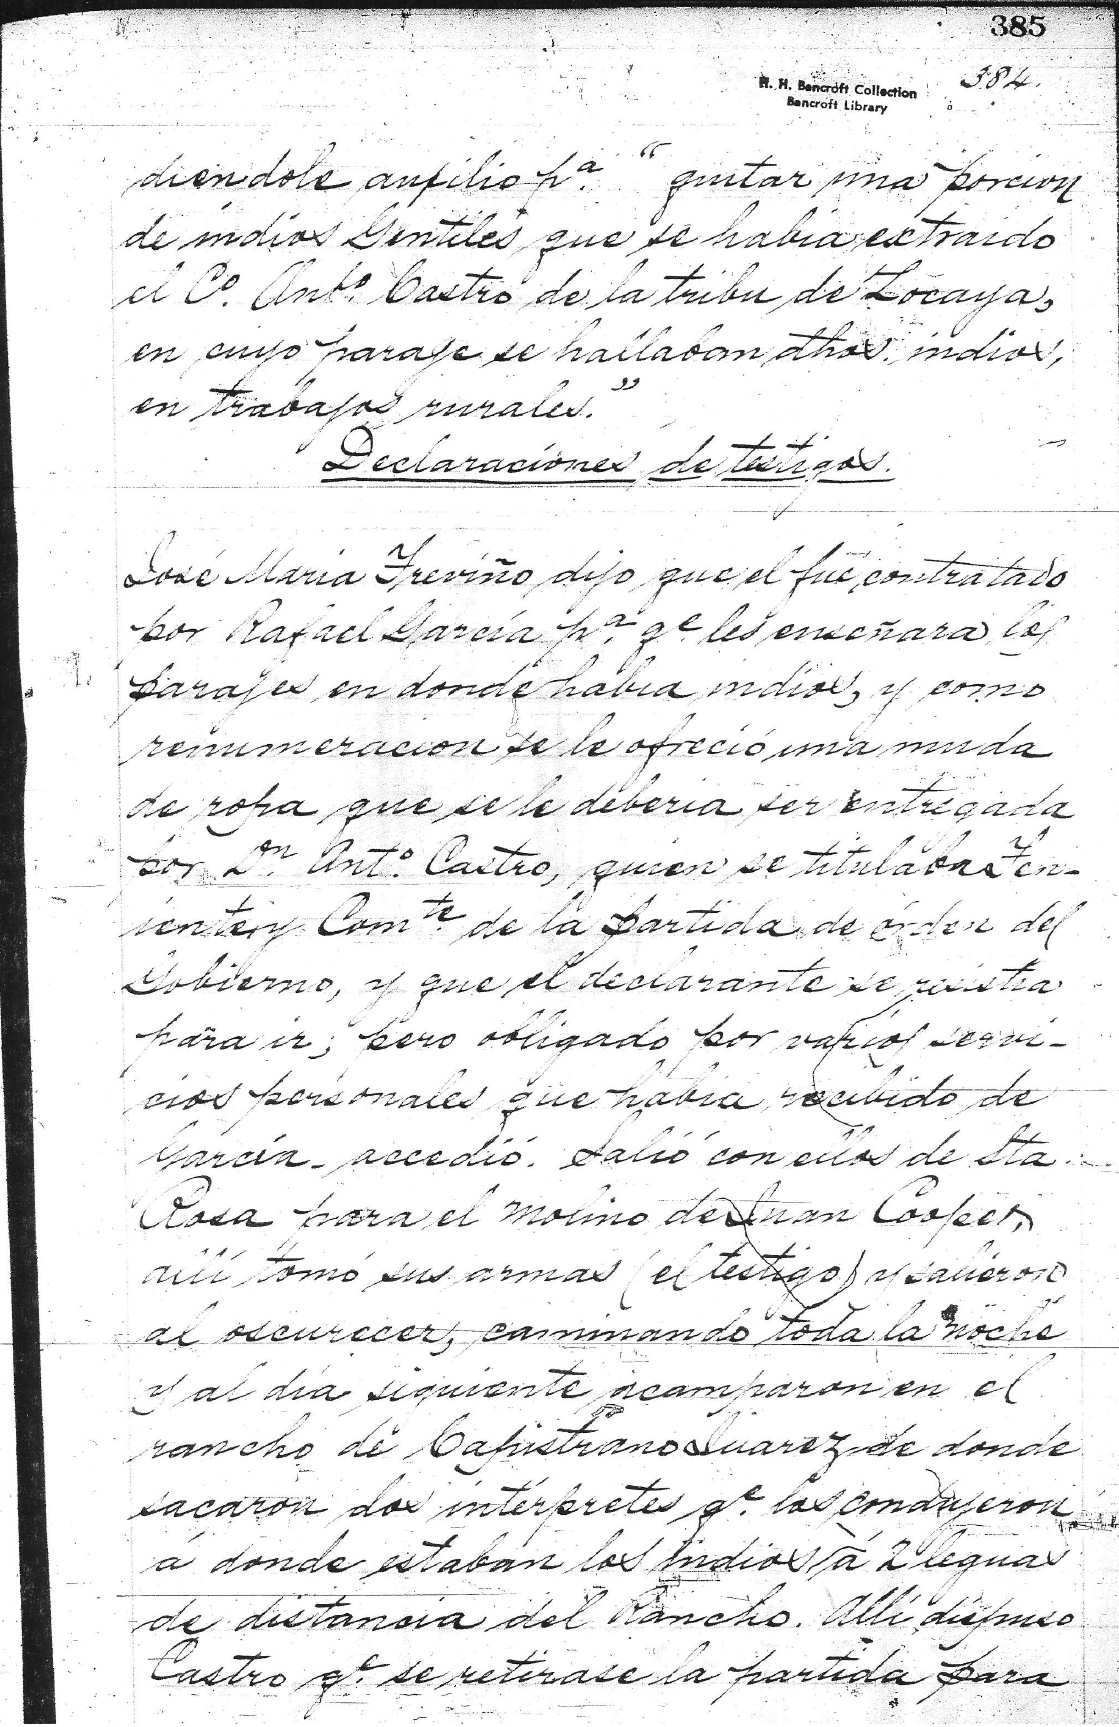 385
384.
H. H. Bancroft Collection
Bancroft Library
diendole auxilio pa. "quitar una porcion
de indios Gentiles que se habia extraido
el Co. Anto. Castro de la tribu de Locaya,
en cuyo paraje se hallaban dhos. indios,
en trabajos rurales."
Declaraciones de testigos.
José Maria Treviño dijo que el fué contratado
por Rafael García pa. qe. les enseñara los
parajes en donde habia indios, y como
renumeracion se le ofreció una muda
de ropa que se le deberia ser entregada
por Dn. Anto. Castro, quien se titulaba Ten-
iente y Comte. de la partida de órden del
Gobierno, y que el declarante se resistia
para ir; pero obligado por varios servi-
cios personales que habia recibido de
García accedió. Salió con ellos de Sta.
Rosa para el molino de Juan Cooper,
allí tomó sus armas (el testigo) y salieron
al oscurecer, caminando toda la noche
y al dia siguiente acamparon en el
rancho de Capistrano Suarez de donde
sacaron dos intérpretes qe. los condujeron
á donde estaban los indios á 2 leguas
de distancia del Rancho. Allí dispuso
Castro qe. se retirase la partida para